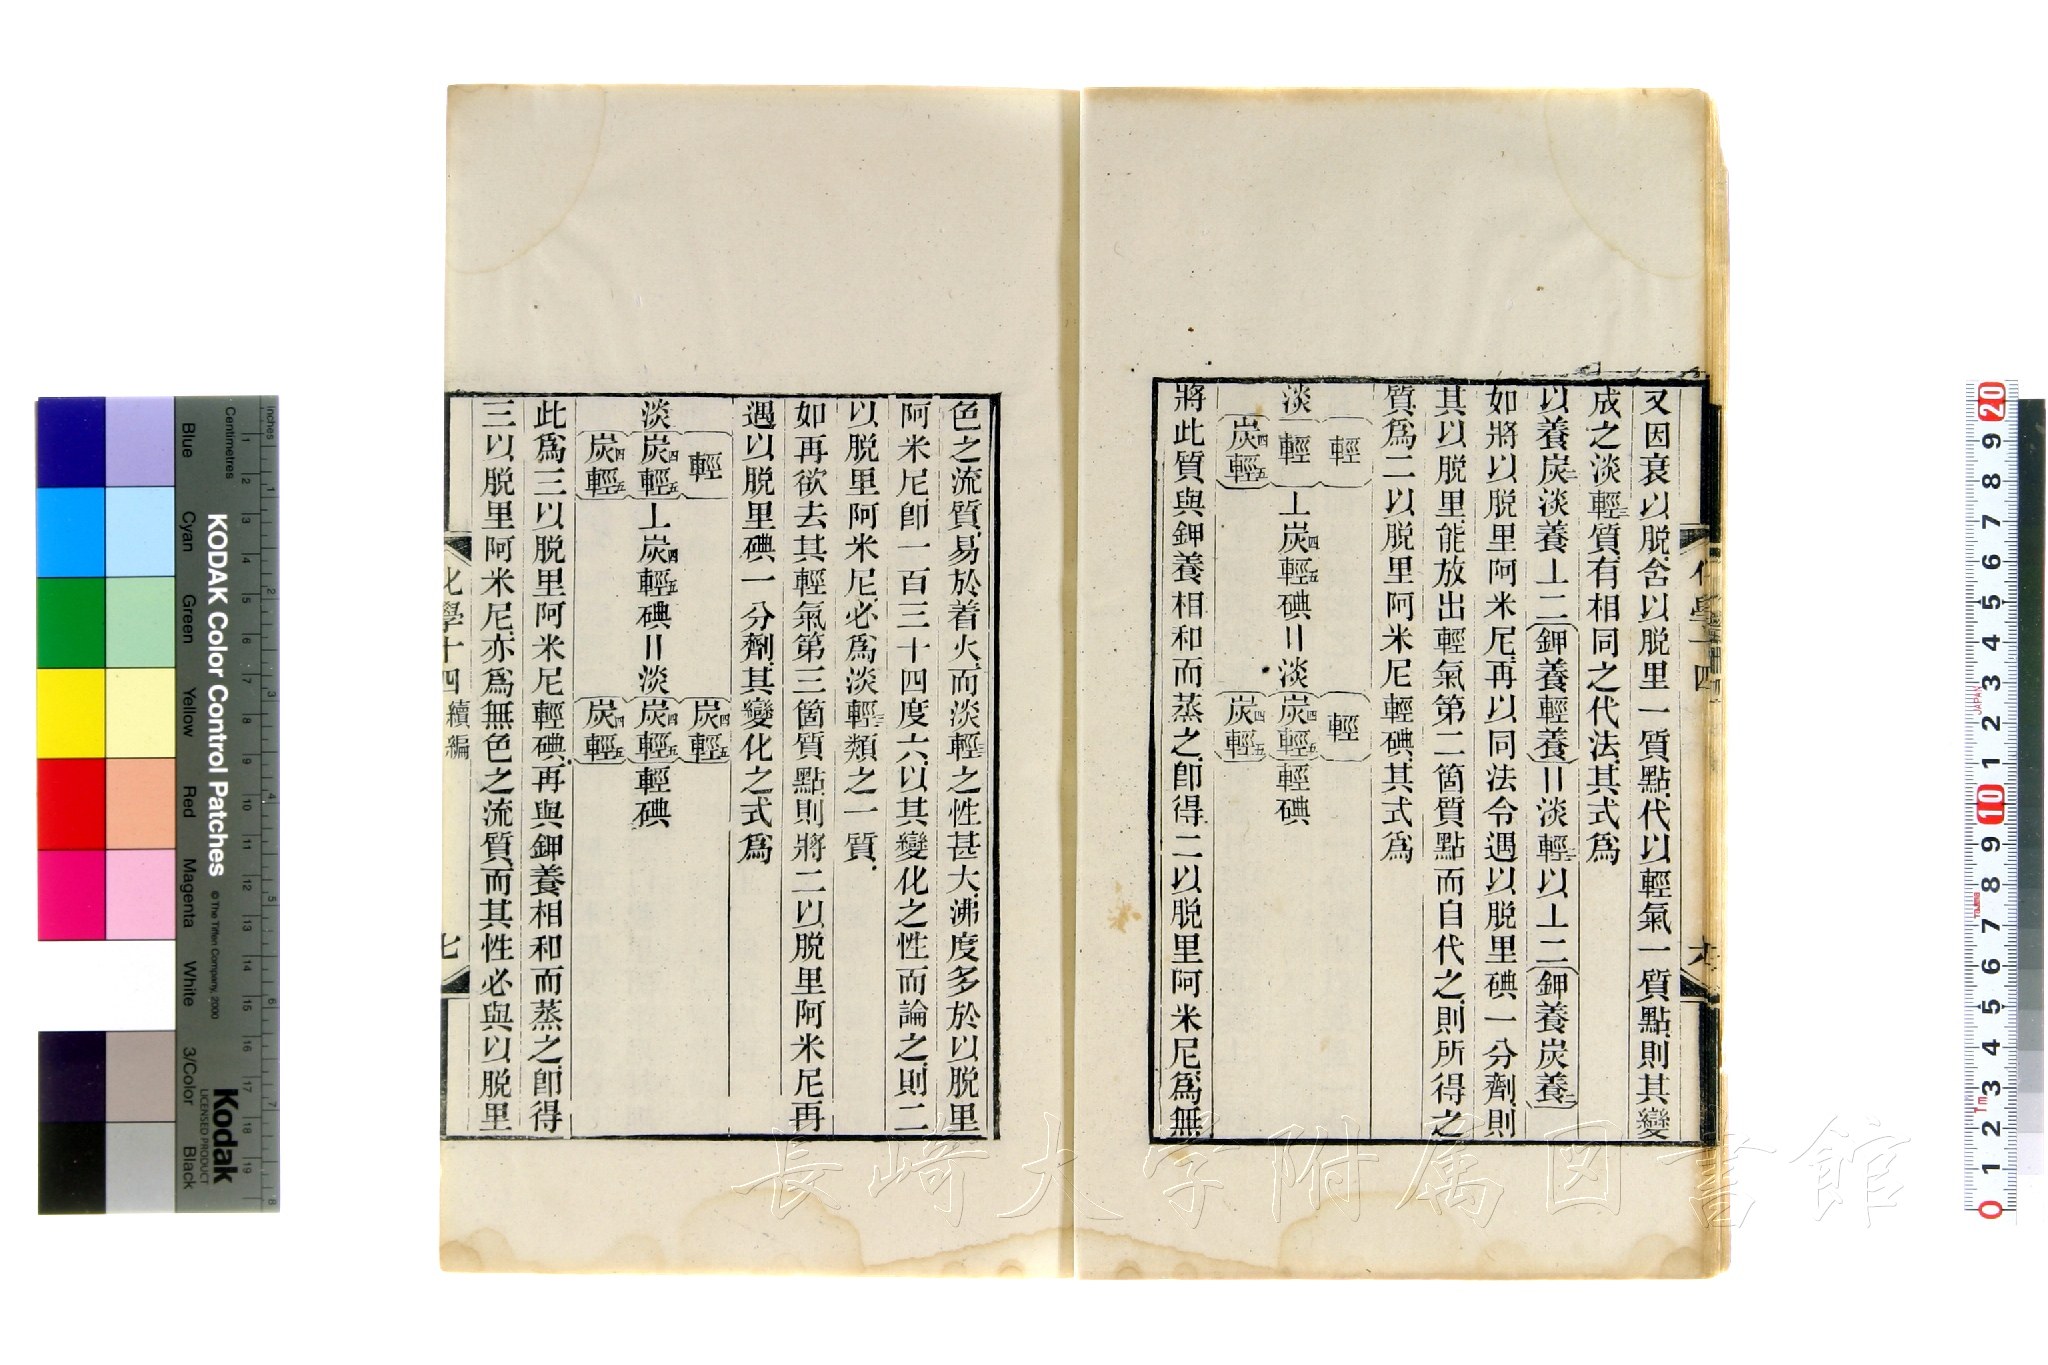 又因衰以脱含以脱里一質點代以輕氣一質點則其變
成之淡輕三質有相同之代法其式爲
以養炭二淡養上二(鉀養輕養)〢淡輕三以上二(鉀養炭養二)
如將以脱里阿米尼再以同法令遇以脱里碘一分劑則
其以脱里能放出輕氣第二箇質點而自代之則所得之
質爲二以脱里阿米尼輕碘其式爲
輕 輕
淡 輕 上炭四輕五碘〢淡 炭四輕五 輕碘
炭四輕五 炭四輕五
將此質與鉀養相和而蒸之卽得二以脱里阿米尼爲無
化學十四
六
色之流質易於着火而淡輕三之性甚大沸度多於以脱里
阿米尼卽一百三十四度六以其變化之性而論之則二
以脱里阿米尼必爲淡輕三類之一質
如再欲去其輕氣第三箇質點則將二以脱里阿米尼再
遇以脱里碘一分劑其變化之式爲
輕 炭四輕五
淡 炭四輕五 上炭四輕五碘〢淡 炭四輕五 輕碘
炭四輕五 炭四輕五
此爲三以脱里阿米尼輕碘再與鉀養相和而蒸之卽得
三以脱里阿米尼亦爲無色之流質而其性必與以脱里
化學十四 續編
七
長崎大学附属図書館
KODAK Color Control Patches
© The Tiffen Company, 2000
Kodak
LICENSED PRODUCT
inches
Centimetres
Blue
Cyan
Green
Yellow
Red
Magenta
White
3/Color
Black
JAPAN